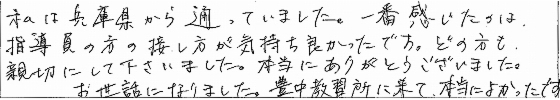 私は兵庫県から通っていました。一番感じたのは、
指導員の方の接し方が気持ち良かったです。どの方も、
親切にして下さいました。本当にありがとうございました。
お世話になりました。豊中教習所に来て、本当によかったな